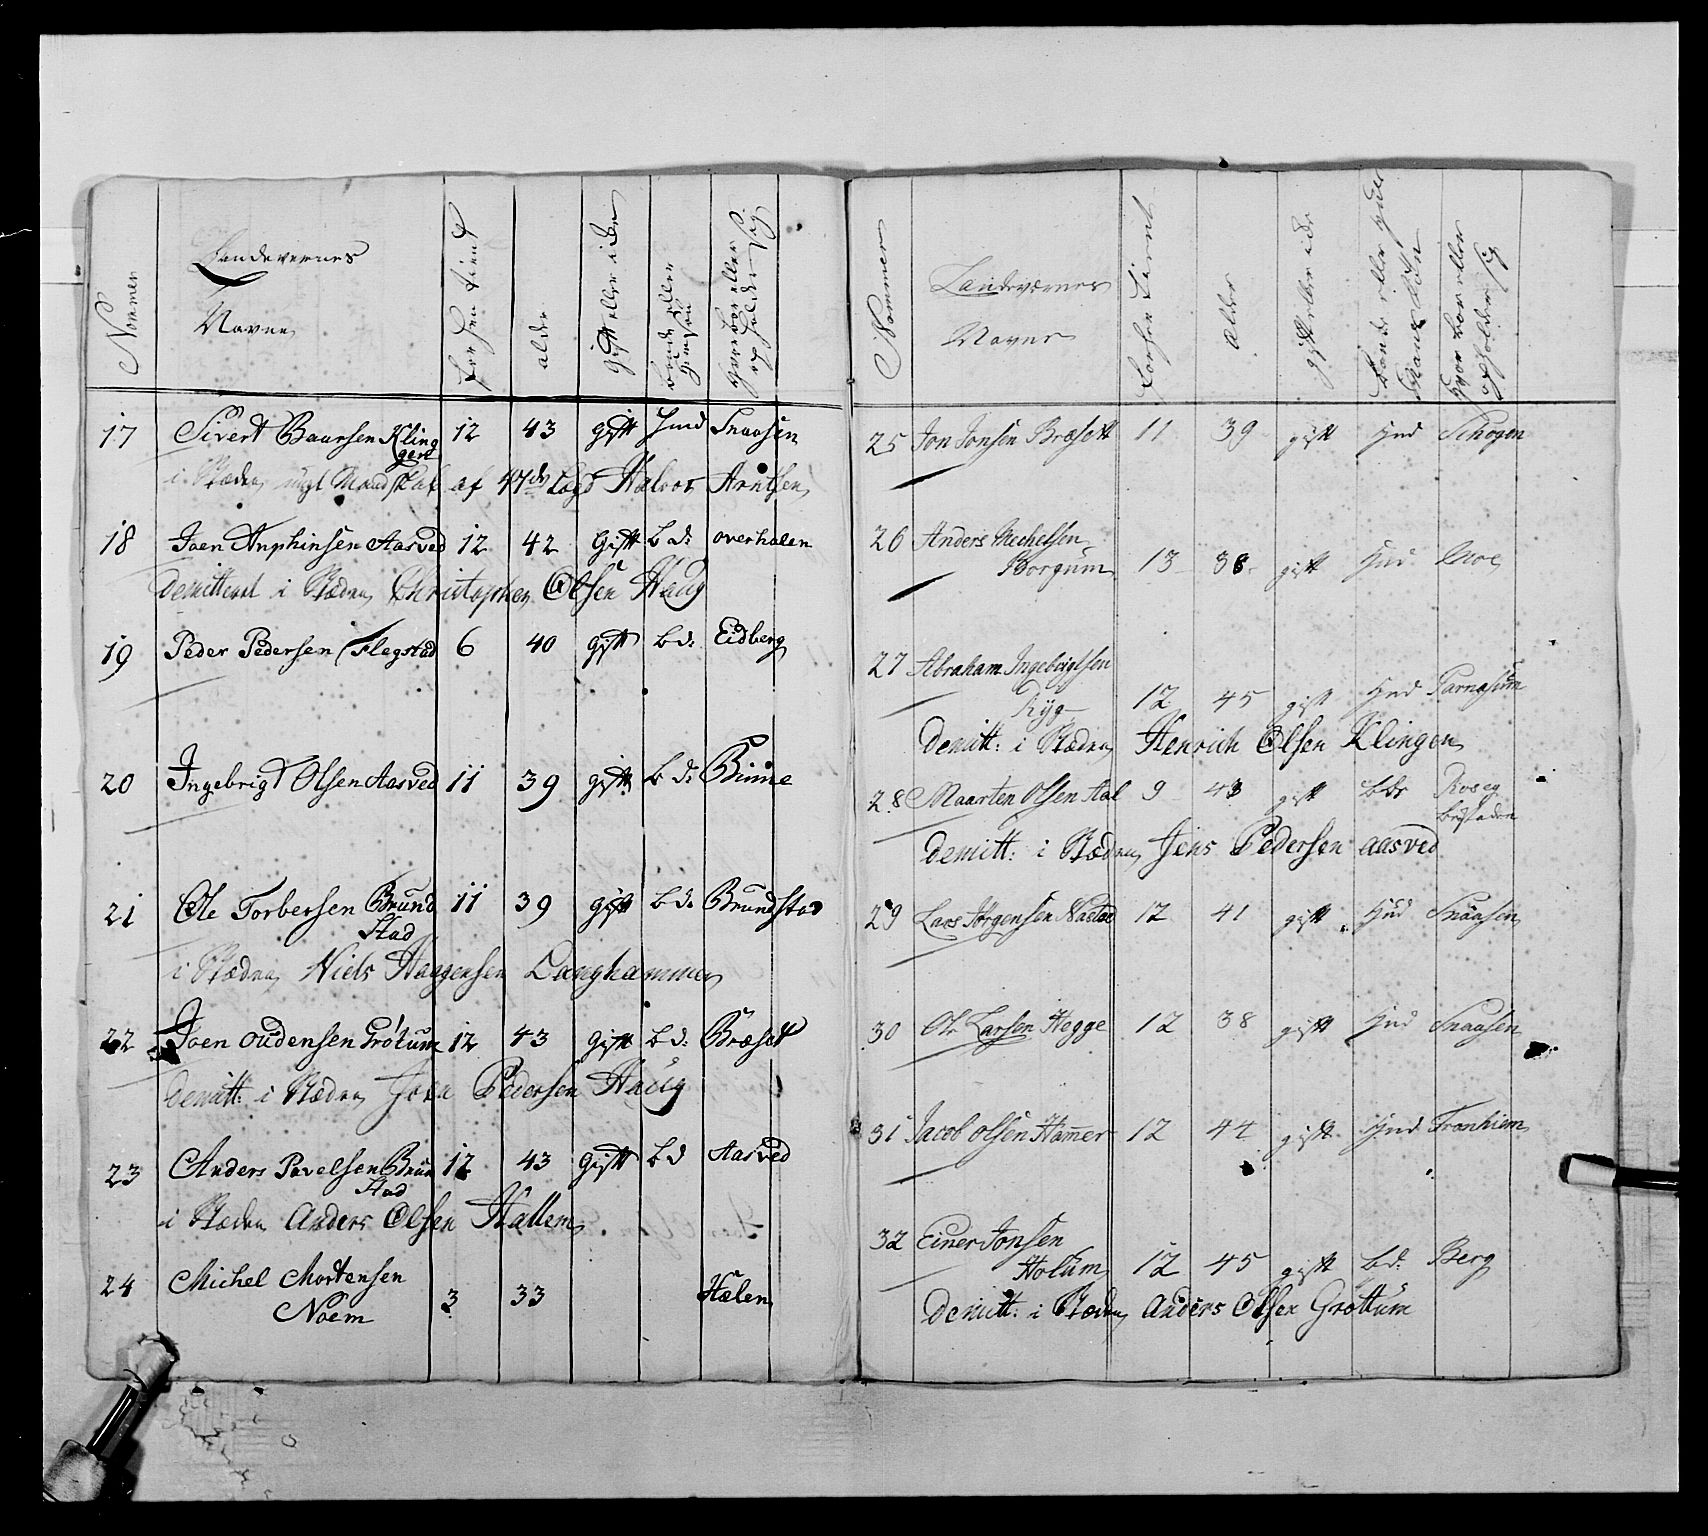 Nommer
Landevernes
Navne
for hen tient
alder
gift eller iche
bonde eller
hvor boer eller
op holder sig
17 Sivert Baarsen Kling 12 43 gift Hmd Snaasen
gen
i Stæden ungt Mandskab af 47de Lægd Halvor Arntsen
18 Joen Anphinsen Aasved 12 42 Gift bd: overhalen
demitteret i Stæden Christopher Olsen Haug
19 Peder Pedersen Flegstad 6 40 gift bd: Eidberg
20 Ingebrigt Olsen Aasved 11 39 gift bd: Binne
21 Ole Torbersen Brund 11 39 gift bd: Brundstad
Stad
i Stæden Niels Haagensen Langhammer
22 Joen oudensen Grötum 12 43 Gift bd: Bræset
demitt: i Stæden Joen Pedersen Haug
23 Anders Pavelsen Brun 12 43 Gift bd Aasved
Stad
i Stæden Anders Olsen Hallem
24 Michel Mortensen
Noem 3 33 Hælen
Nommer
Landeværnes
Navne
forhen tient
alder
gift eller iche
Bonde eller
hvor boer eller
opholder sig
25 Jon Jonsen Bræsett 11 39 gift Hmd Schogen
26 Anders Mechelsen
Borgum 13 38 gift Hmd Moe
27 Abraham Ingebrigtsen
Ryg 12 45 gift Hmd Parnasum
demitt: i Stæden Henrich Olsen Klingen
28 Maarten Olsen Aal 9 43 gift bds
demitt: i Stæden Jens Pedersen aasved
29 Lars Jörgensen Nastad 12 41 gift Hmd Snaasen
30 Ole Larsen Hegge 12 38 gift Hmd Snaasen
31 Jacob olsen Hamer 12 44 gift Hmd Tronhiem
32 Einer Jonsen
Holum 12 45 gift bd: Berg
Demitt: i Stæden Anders Olsen Grøttum